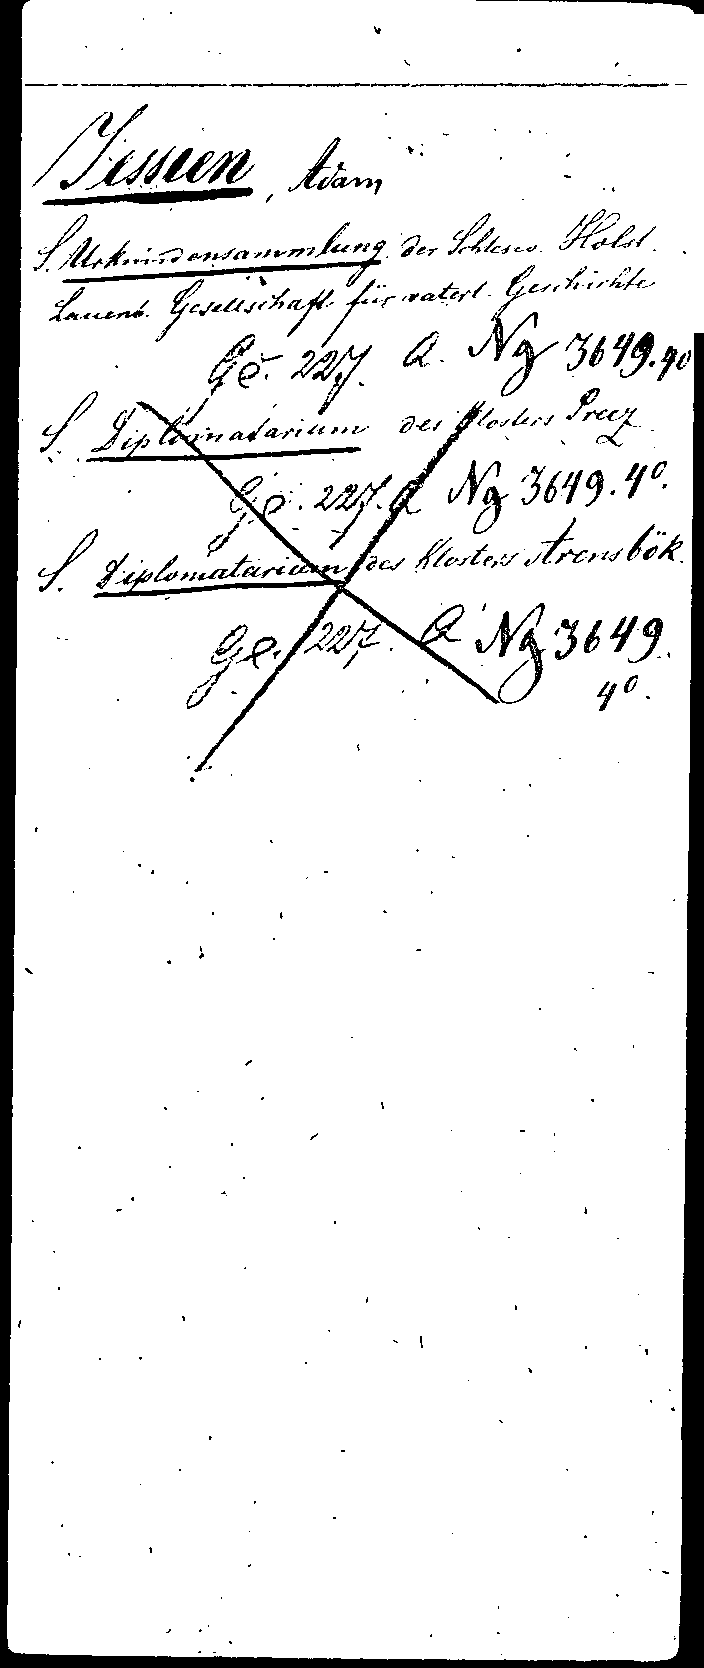 Jessien, Adam
S. Urkundensammlung der Schlesw. Holst.
Lauenb. Gesellschaft für vaterl. Geschichte
Ge. 227. a. Ng 3649. 4°
S. Diplomatarium des Klosters Preez
Ge. 227. a Ng 3649. 4°.
S. Diplomatarium des Klosters Arensbök.
Ge. 227. a Ng 3649.
4°.